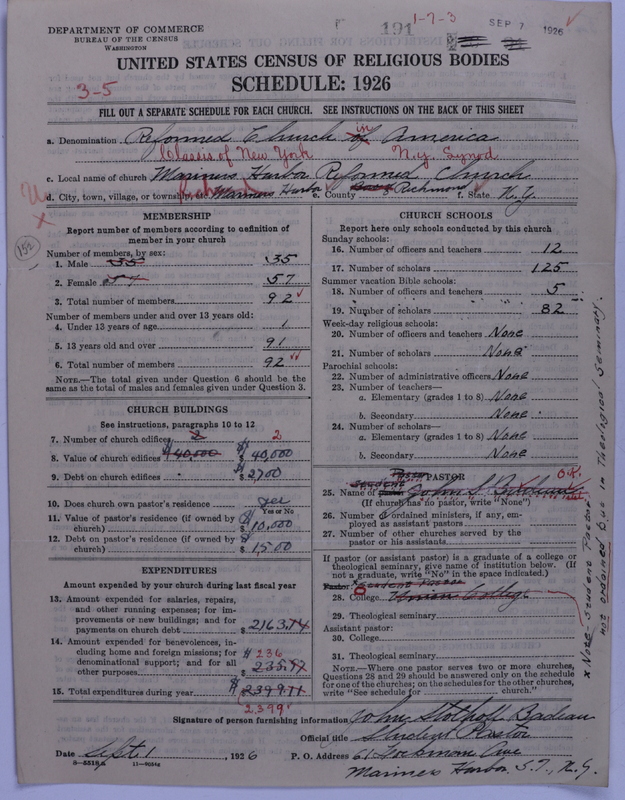 DEPARTMENT OF COMMERCE
BUREAU OF THE CENSUS
WASHINGTON
191
1-7-3
SEP 7 1926
UNITED STATES CENSUS OF RELIGIOUS BODIES
SCHEDULE: 1926
3-5
FILL OUT A SEPARATE SCHEDULE FOR EACH CHURCH. SEE INSTRUCTIONS ON THE BACK OF THIS SHEET
a. Denomination Reformed Church in America
Classis of New York N.Y. Synod
c. Local name of church Mariners Harbor Reformed Church
d. City, town, village, or township, etc. Mariners Harbor e. County Richmond f. State N.Y.
152
MEMBERSHIP
Report number of members according to definition of member in your church
Number of members, by sex:
1. Male 35 35
2. Female 57 57
3. Total number of members 92
Number of members under and over 13 years old:
4. Under 13 years of age 1
5. 13 years old and over 91
6. Total number of members 92
NOTE.—The total given under Question 6 should be the same as the total of males and females given under Question 3.
CHURCH BUILDINGS
See instructions, paragraphs 10 to 12
7. Number of church edifices 2 2
8. Value of church edifices $40,000 $40,000
9. Debt on church edifices $2,700
10. Does church own pastor's residence? yes
Yes or No
11. Value of pastor's residence (if owned by church) $10,000
12. Debt on pastor's residence (if owned by church) $1,500
EXPENDITURES
Amount expended by your church during last fiscal year
13. Amount expended for salaries, repairs, and other running expenses; for improvements or new buildings; and for payments on church debt $2163.74
14. Amount expended for benevolences, including home and foreign missions; for denominational support; and for all other purposes $236
15. Total expenditures during year $2399.71
2,399
CHURCH SCHOOLS
Report here only schools conducted by this church
Sunday schools:
16. Number of officers and teachers 12
17. Number of scholars 125
Summer vacation Bible schools:
18. Number of officers and teachers 5
19. Number of scholars 82
Week-day religious schools:
20. Number of officers and teachers None
21. Number of scholars None
Parochial schools:
22. Number of administrative officers None
23. Number of teachers—
a. Elementary (grades 1 to 8) None
b. Secondary None
24. Number of scholars—
a. Elementary (grades 1 to 8) None
b. Secondary None
PASTOR
25. Name of Pastor John S. Badeau
(If church has no pastor, write "None")
26. Number of ordained ministers, if any, employed as assistant pastors
27. Number of other churches served by the pastor or his assistants
If pastor (or assistant pastor) is a graduate of a college or theological seminary, give name of institution below. (If not a graduate, write "No" in the space indicated.)
Pastor:
28. College Union College
29. Theological seminary
Assistant pastor:
30. College
31. Theological seminary
NOTE.—Where one pastor serves two or more churches, Questions 28 and 29 should be answered only on the schedule for one of the churches; on the schedules for the other churches, write "See schedule for church."
x Note Student Pastor
not ordained but in Theological Seminary.
Signature of person furnishing information John Stothoff Badeau
Official title Student Pastor
Date Sept. 1, 1926 P. O. Address
Mariners Harbor S.I., N.Y.
8—5518a 11—9064